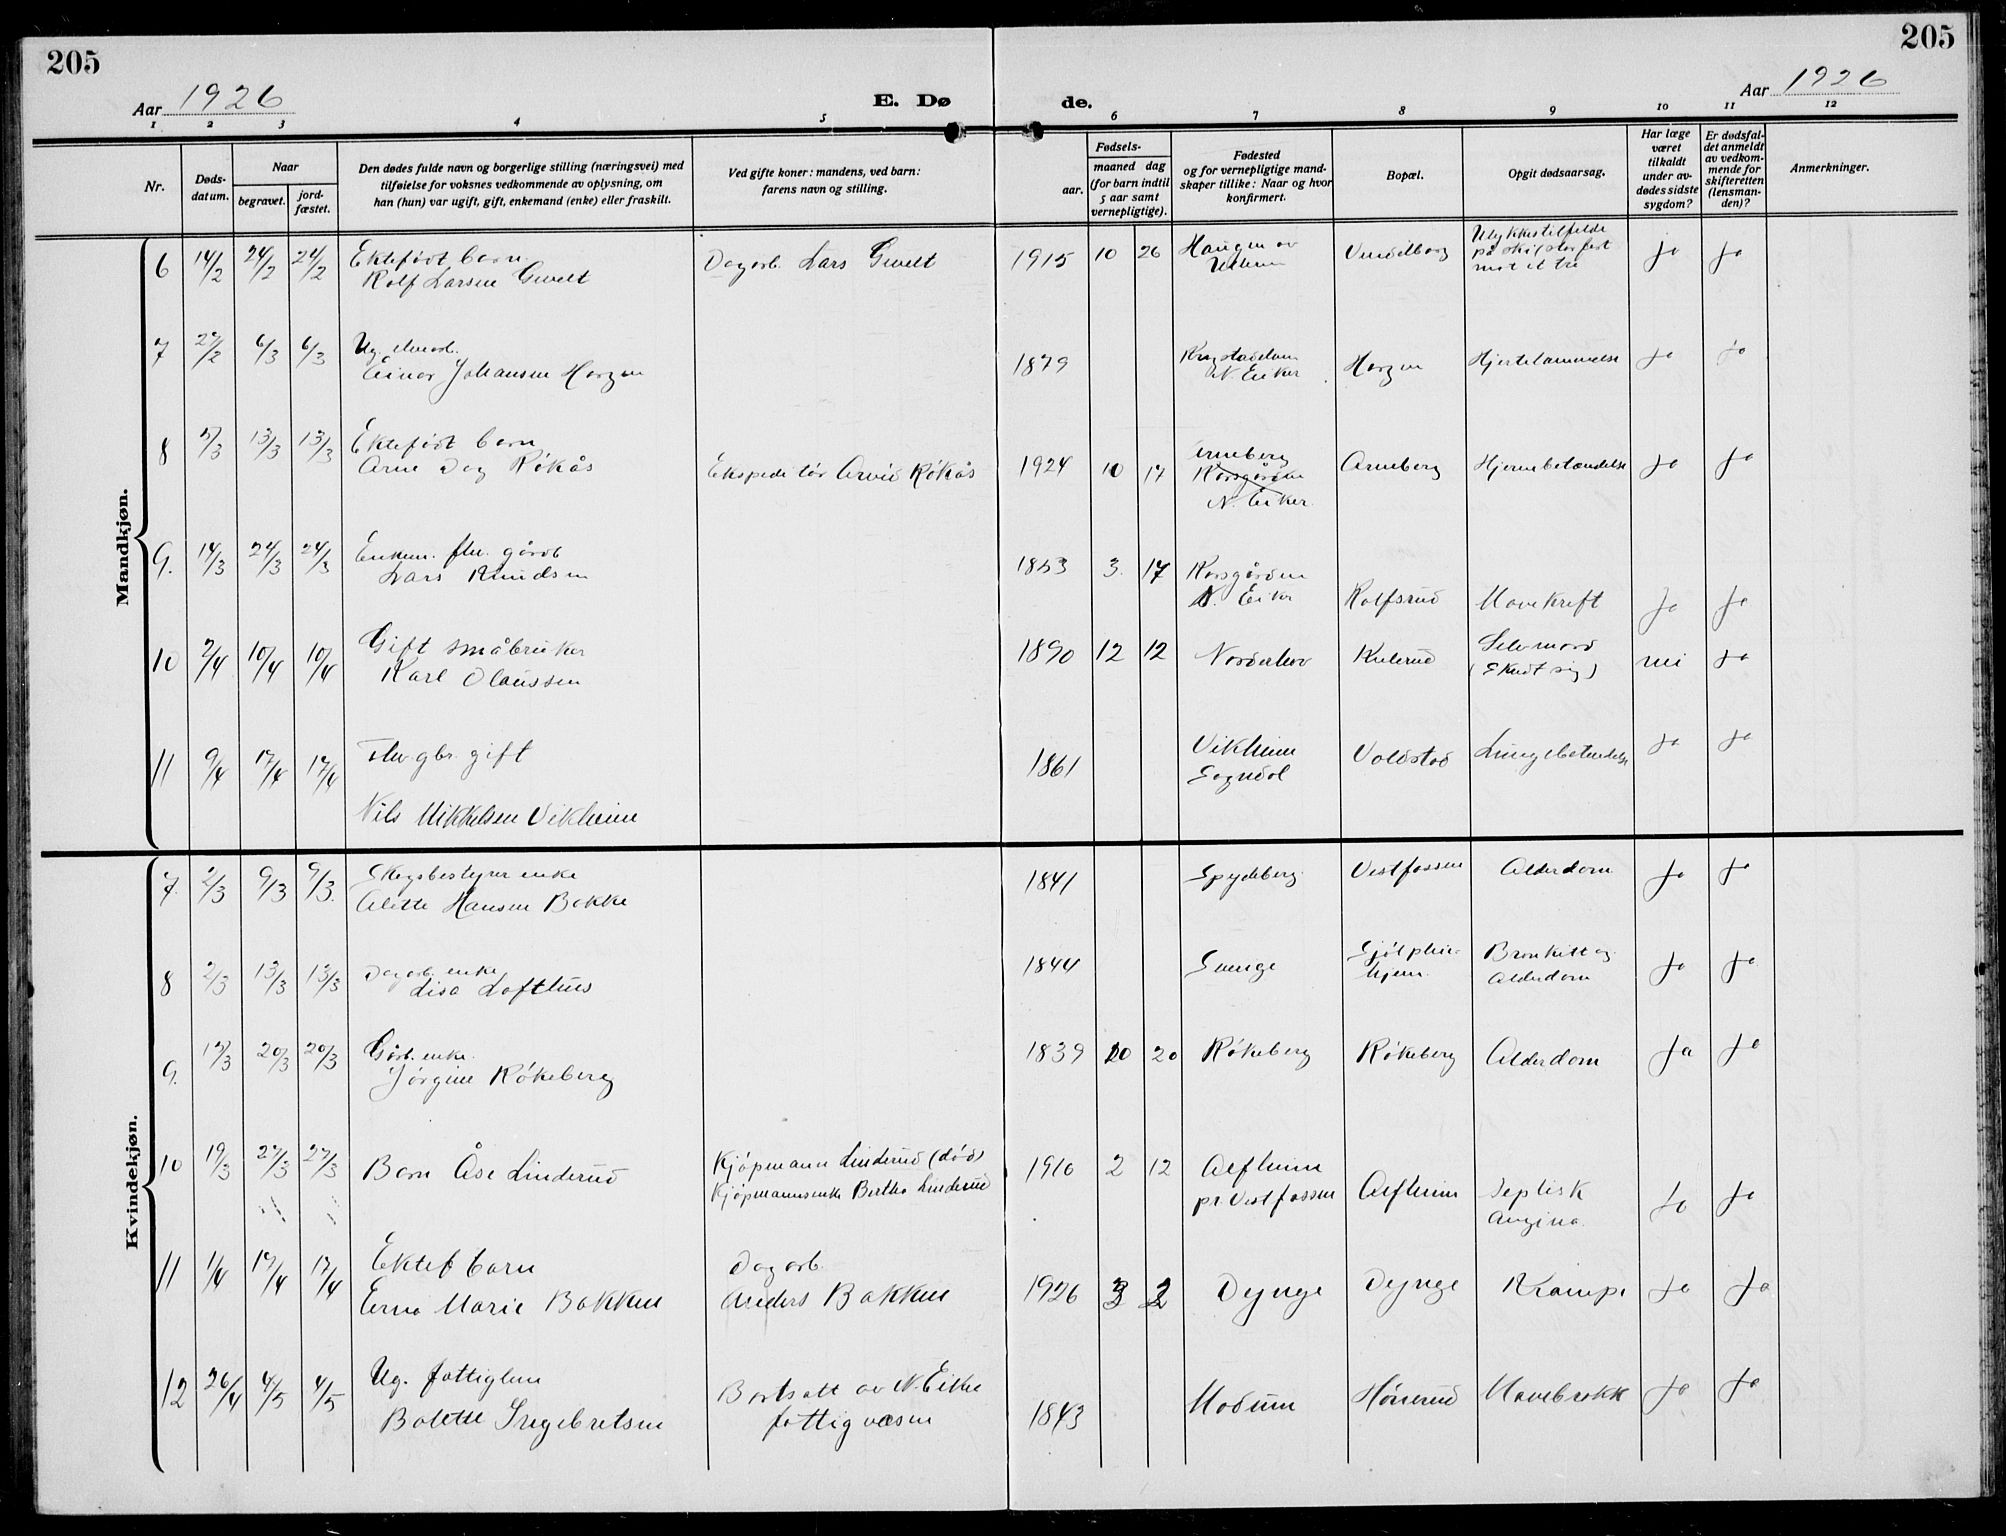 205
205
Aar 1926
E. Dø
de.
Aar 1926
1 2 3 4 5 6 7 8 9 10 11 12
Nr.
Døds-
datum.
Naar
begravet.
jord-
fæstet.
Den dødes fulde navn og borgerlige stilling (næringsvei) med
tilføielse for voksnes vedkommende av oplysning, om
han (hun) var ugift, gift, enkemand (enke) eller fraskilt.
Ved gifte koner: mandens, ved barn:
farens navn og stilling.
Fødsels-
aar.
maaned dag
(for barn indtil
5 aar samt
vernepligtige).
Fødested
og for vernepligtige mand-
skaper tillike: Naar og hvor
konfirmert.
Bopæl.
Opgit dødsaarsag.
Har læge
været
tilkaldt
under av-
dødes sidste
sygdom?
Er dødsfal-
det anmeldt
av vedkom-
mende for
skifteretten
(lensman-
den)?
Anmerkninger.
Mandkjøn.
6 14/2 24/2 24/2 Ektefødt barn
Rolf Larsen
Dagarb. Lars
1915 10 26 Haugen av
Ulykkestilfelde
på ski
mot et tre
ja ja
7 6/3 6/3 Ug.
Einar Johansen Horgen
1879
N. Eiker
Horgen Hjertelammelse ja ja
8 5/3 13/3 13/3 Ektefødt barn
Arne Dag Røkås
Ekspeditør Arvid Røkås
1924 10 17 Arneberg
Korsgården
N. Eiker
Arneberg Hjernebetændelse ja ja
9. 14/3 24/3 24/3 Enkem. fhv. gårdb
Lars Knudsen
1853 3. 17 Korsgården
N. Eiker
Rolfsrud Mavekreft ja ja
10 2/4 10/4 10/4 Gift småbruker
Karl Olaussen
1890 12 12 Norderhov Kulerud Selvmord
(Skudt sig)
nei ja
11 9/4 17/4 17/4 Fhv. gbr. gift
Nils Mikkelsen Vikheim
1861 Vikheim
Sogndal
Voldstad Lungebetendelse ja ja
Kvindekjøn.
7. 2/3 9/3 9/3. enke
Alette Hansen Bakke
1841 Spydeberg. Vestfossen Alderdom ja ja
8 2/3 13/3 13/3 Dagarb. enke
Lisa Lofthus
1844
hjem.
Bronkitt og
Alderdom
ja ja
9. 15/3 20/3 20/3 Gårb. enke.
Jørgine Røkeberg
1839 10 20 Røkeberg Røkeberg Alderdom ja ja
10 19/3 27/3 27/3 Barn Åse Linderud
Kjøpmann Linderud (død)
Kjøpmannsenke Bertha Linderud
1916 2 12 Alfheim
pr. Vestfossen
Alfheim Septisk
Angina.
ja ja
11 1/4 17/4 17/4 Ektef barn
Erna Marie Bakken
Dagarb.
Anders Bakken
1926 3 2 Dynge Dynge Krampe ja ja
12 26/4 4/5 4/5 Ug. fattiglem
Bolette Ingebretsen
Bortsatt av N. Eiker
fattigvæsen
1843 Modum Hønerud Mavebrokk ja ja